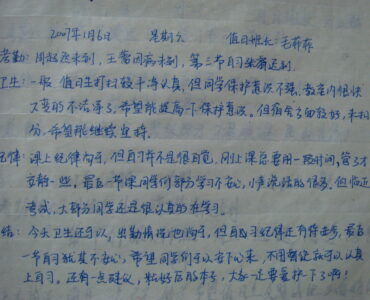 2007年1月6日 星期六 值日班长:毛莉莉
考勤:周 未到,王 因病未到,第三节自习 迟到.
卫生:一般 值日生打扫较干净认真,但同学保护意识不强.教室内很快
又变的不洁净了,希望能提高下保护意识。但宿舍方面较好,未扣
分,希望能继续坚持.
纪律:课上纪律尚可,但自习并不是很自觉,刚上课总要用一段时间,管了才
安静一些,最后一节课同学们部分学习不安心,小声说话的很多.但临近
考试,大部分同学还是很认真的在学习。
结:今天卫生还可以,出勤情况也尚可,但自习纪律还有待 ,最后
一节自习尤其不安心,希望同学们可以安下心来,不用督促就可以认真
上自习。还有一点建议, 好后的本子,大家一定要爱护一下了啊!